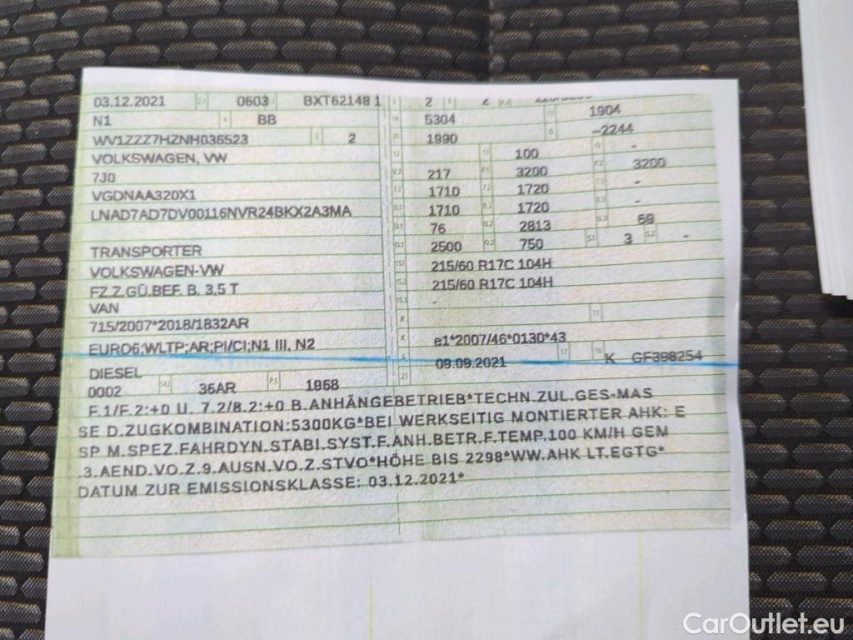 03.12.2021 2.1 0603 BXT62148 1 2 2
N1 BB 5304 1904
WV1ZZZ7HZNH036523 2 1990 –2244
VOLKSWAGEN, VW 100 -
7J0 217 3200 3200
VGDNAA320X1 1710 1720 -
LNAD7AD7DV00116NVR24BKX2A3MA 1710 1720 -
76 2813 68
TRANSPORTER 2500 750 3 -
VOLKSWAGEN-VW 215/60 R17C 104H
FZ.Z.GÜ.BEF. B. 3,5 T 215/60 R17C 104H
VAN -
715/2007*2018/1832AR
EURO6;WLTP;AR;PI/CI;N1 III, N2 e1*2007/46*0130*43
DIESEL 09.09.2021 K GF398254
0002 36AR 1968
F.1/F.2:+0 U. 7.2/8.2:+0 B.ANHÄNGEBETRIEB*TECHN.ZUL.GES-MAS
SE D.ZUGKOMBINATION:5300KG*BEI WERKSEITIG MONTIERTER AHK: E
SP M.SPEZ.FAHRDYN.STABI.SYST.F.ANH.BETR.F.TEMP.100 KM/H GEM
.3.AEND.VO.Z.9.AUSN.VO.Z.STVO*HÖHE BIS 2298*WW.AHK LT.EGTG*
DATUM ZUR EMISSIONSKLASSE: 03.12.2021*
CarOutlet.eu